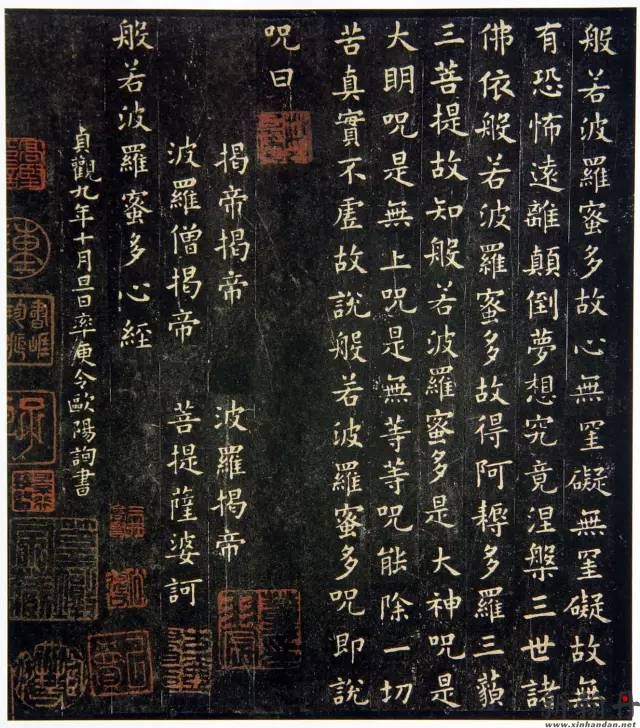 般若波羅蜜多故心無罣礙無罣礙故無
有恐怖遠離顛倒夢想究竟涅槃三世諸
佛依般若波羅蜜多故得阿耨多羅三藐
三菩提故知般若波羅蜜多是大神呪是
大明呪是無上呪是無等等呪能除一切
苦真實不虛故說般若波羅蜜多呪即說
呪曰
揭帝揭帝 波羅揭帝
波羅僧揭帝 菩提薩婆訶
般若波羅蜜多心經
貞觀九年十月旦日率更令歐陽詢書
www.xinhandan.net